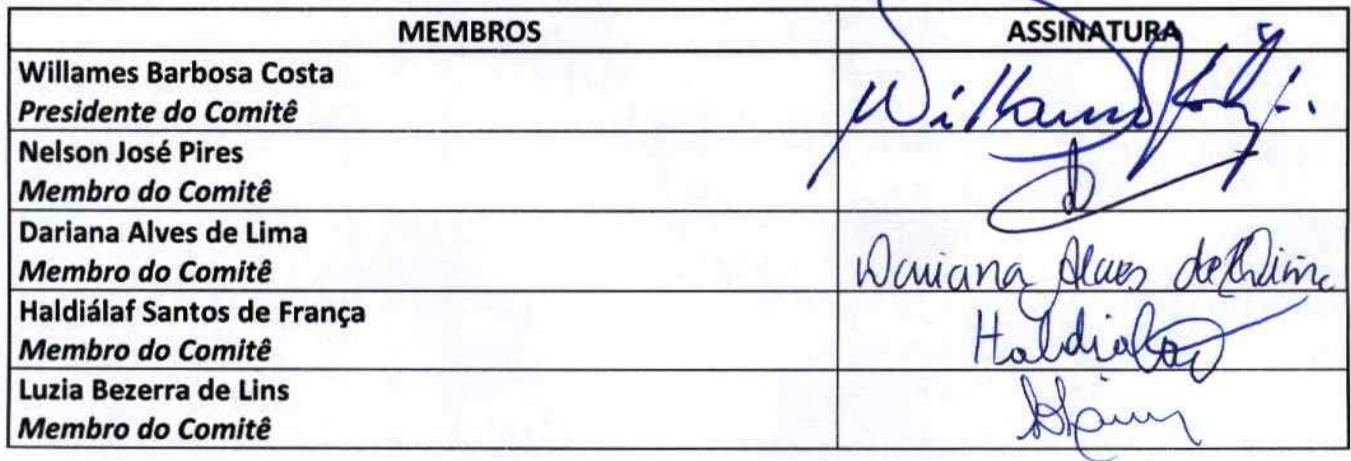 MEMBROS ASSINATURA
Willames Barbosa Costa
Presidente do Comitê
Nelson José Pires
Membro do Comitê
Dariana Alves de Lima
Membro do Comitê
Dariana Alves de Lima
Haldiálaf Santos de França
Membro do Comitê
Luzia Bezerra de Lins
Membro do Comitê